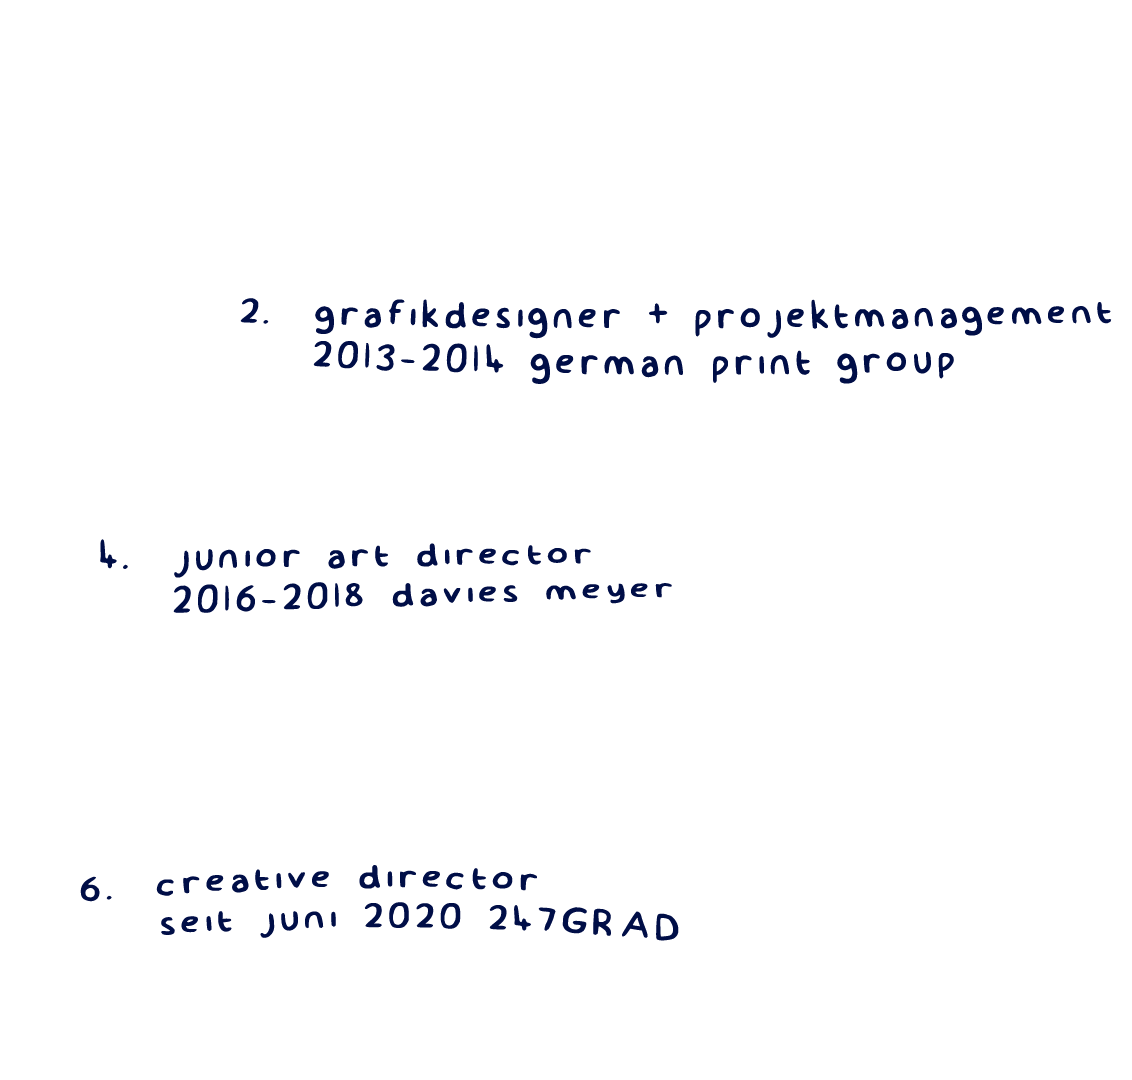 2. grafikdesigner + projektmanagement
2013-2014 german print group
4. junior art director
2016-2018 davies meyer
6. creative director
seit juni 2020 247GRAD